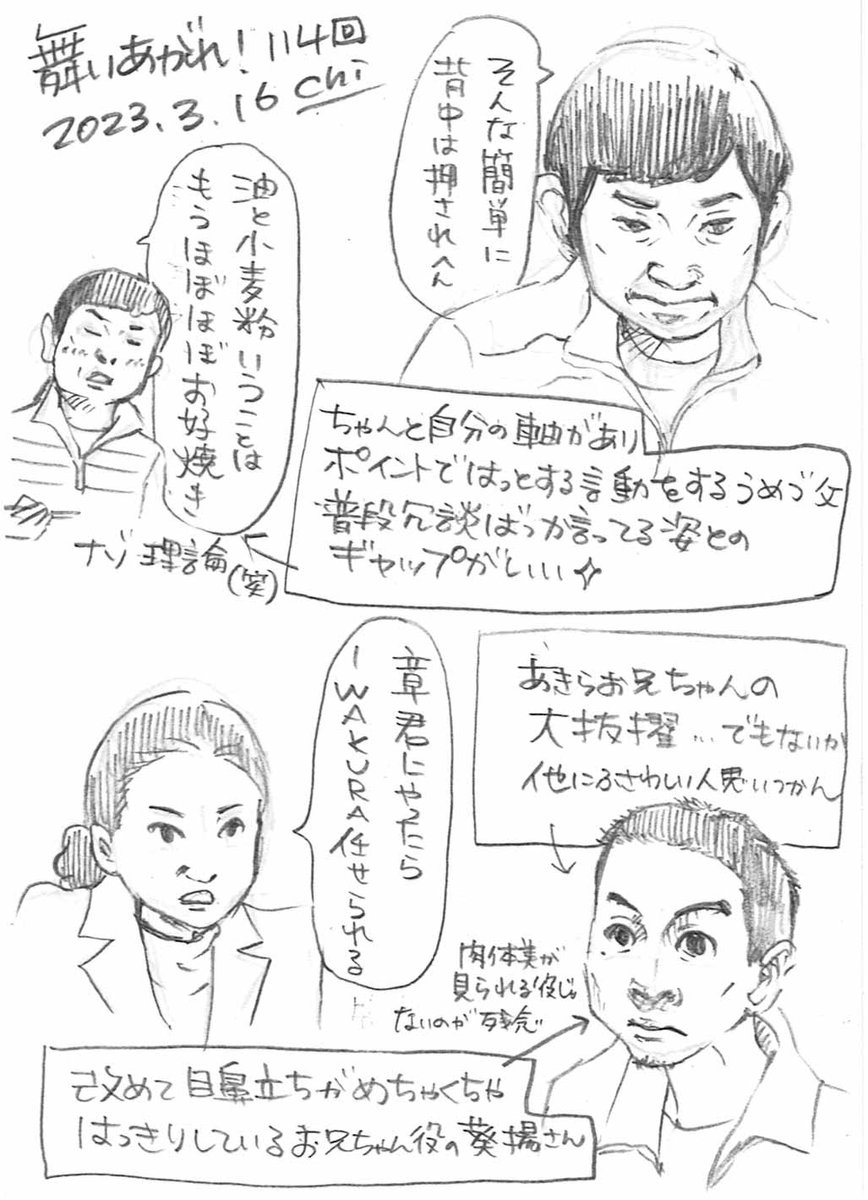 舞いあがれ！114回
2023.3.16 chi
そんな簡単に
背中は押されへん
油と小麦粉いうことは
もうほぼほぼお好焼き
ナゾ理論(笑)
ちゃんと自分の軸があり
ポイントではっとする言動をするうめづ父
普段冗談ばっか言ってる姿との
ギャップがいい✧
章君にやったら
IWAKURA任せられる
あきらお兄ちゃんの
大抜擢…でもないか
他にふさわしい人思いつかん
肉体美が
見られる役じゃ
ないのが残念
改めて目鼻立ちがめちゃくちゃ
はっきりしているお兄ちゃん役の葵揚さん